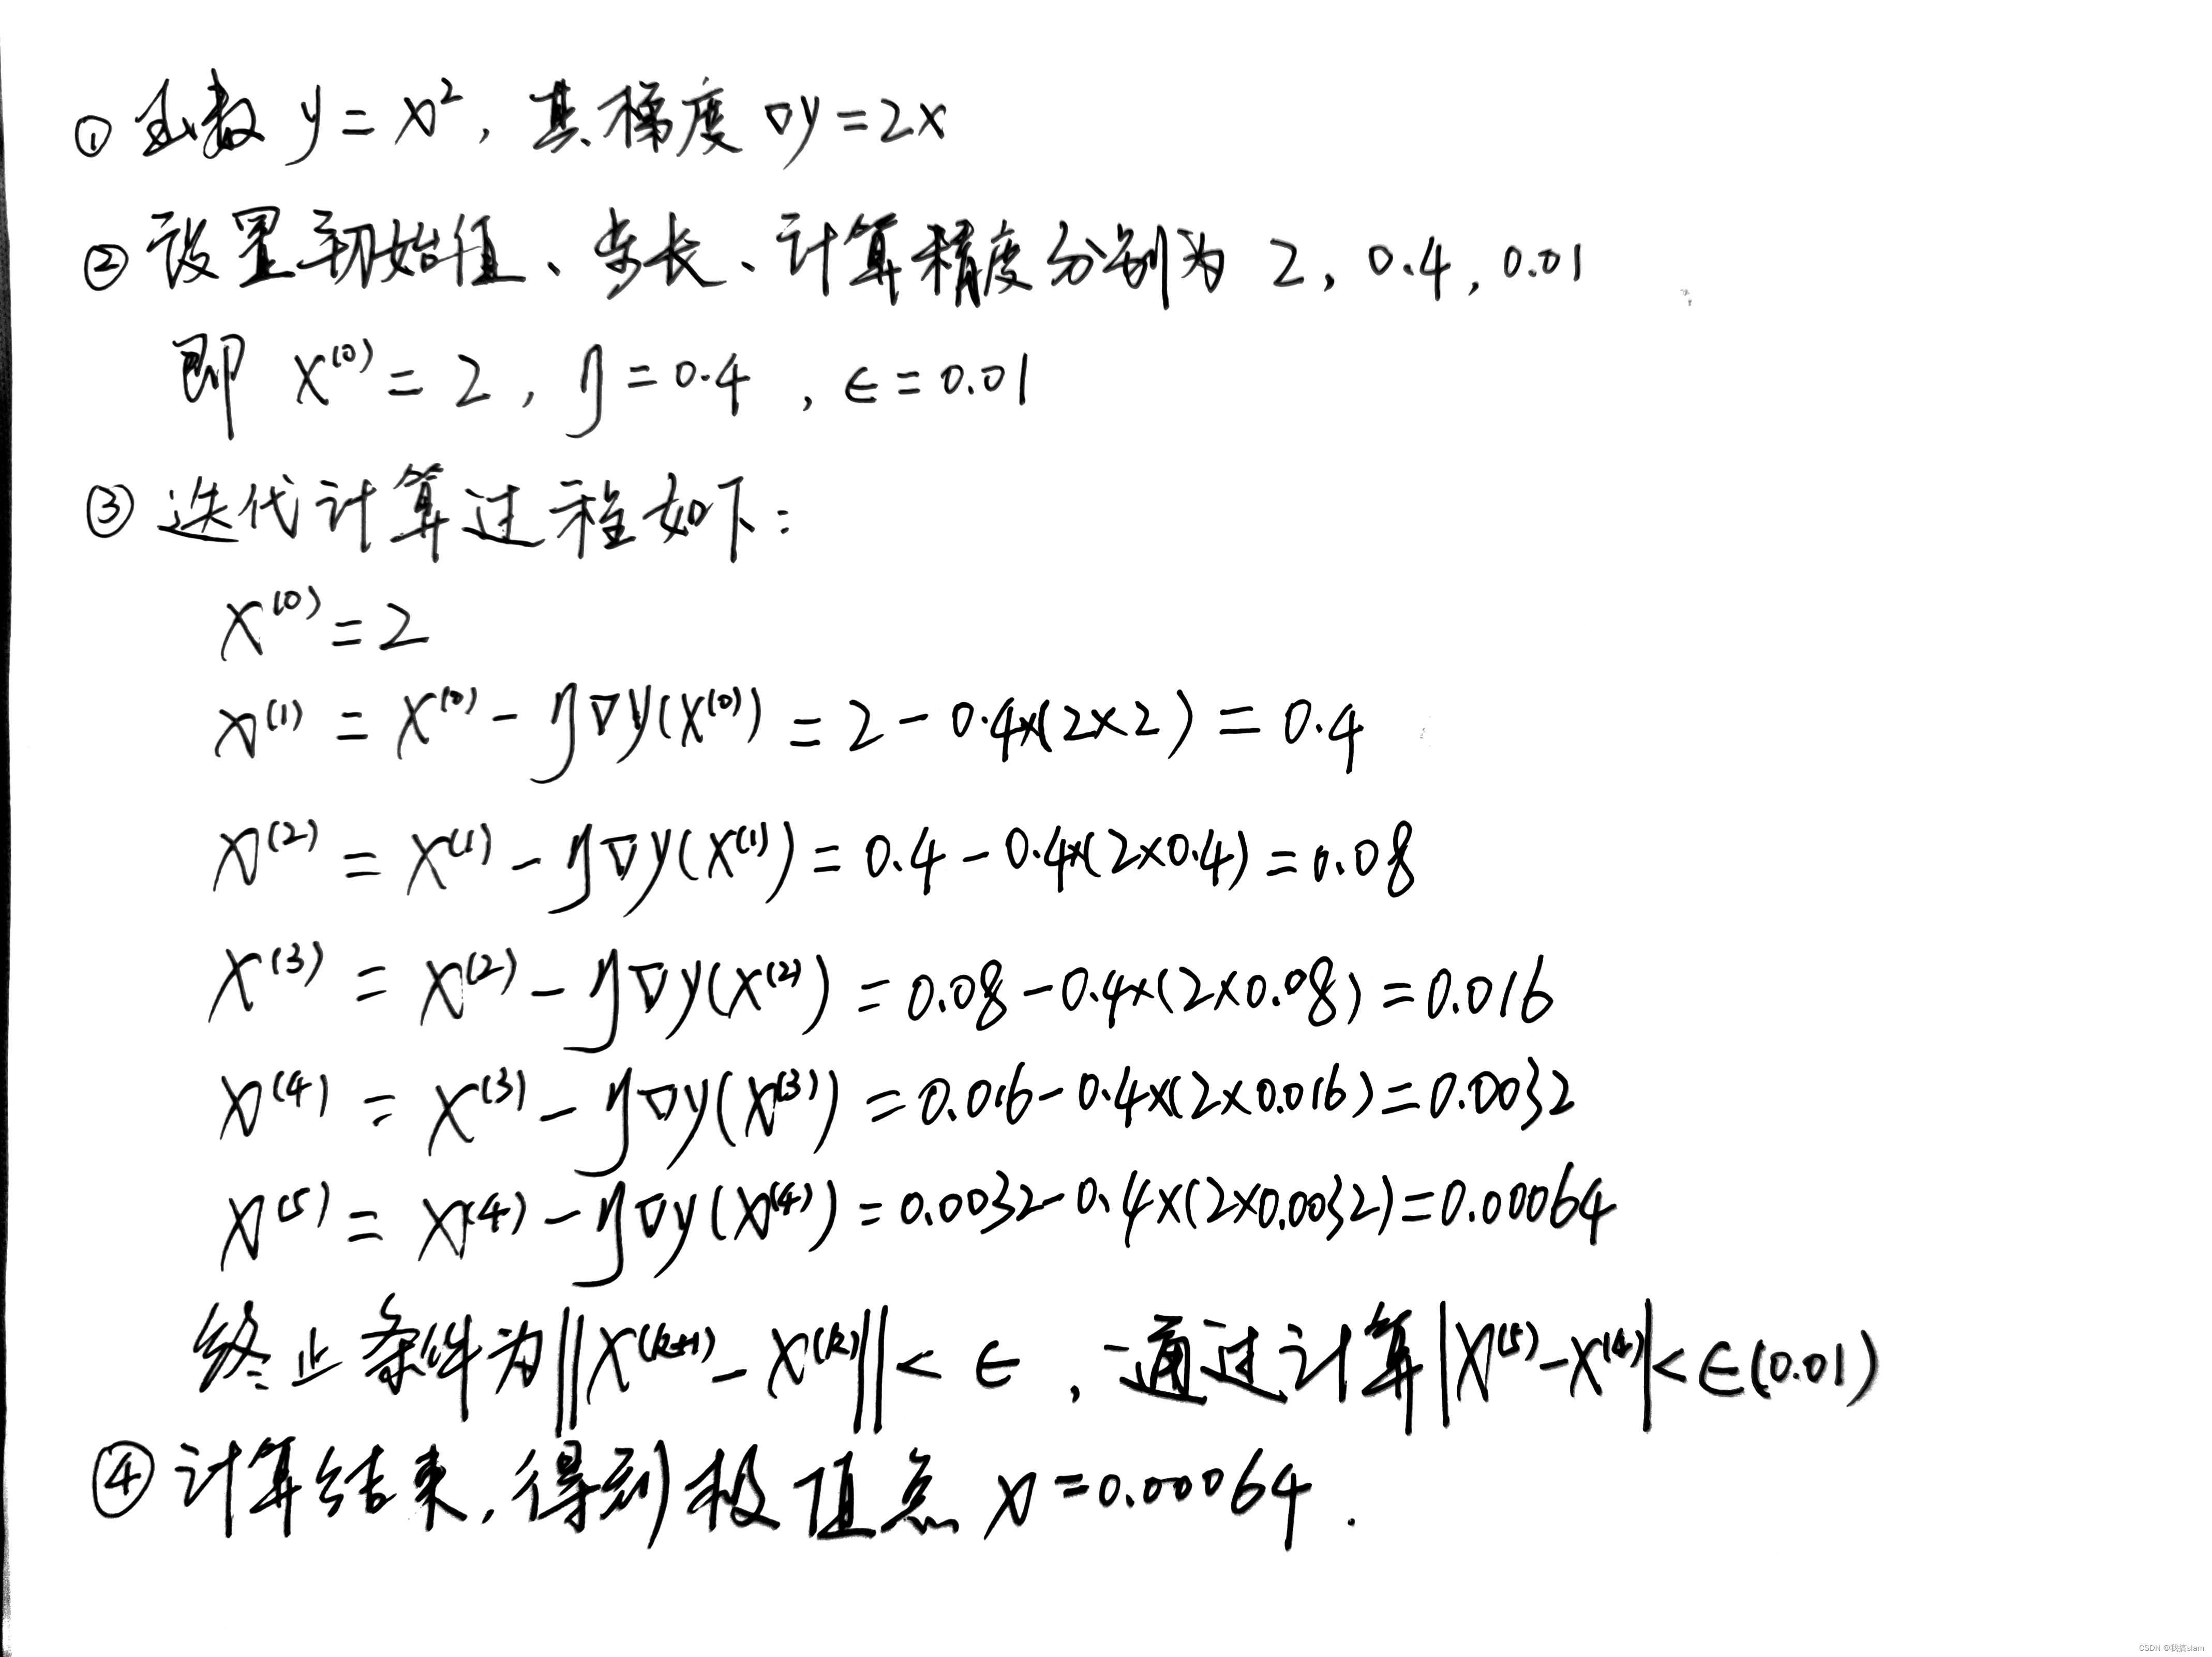 ① 函数 y = x², 其梯度 ∇y = 2x
② 设置初始值、步长、计算精度分别为 2, 0.4, 0.01
即 x⁽⁰⁾ = 2, η = 0.4, ϵ = 0.01
③ 迭代计算过程如下:
x⁽⁰⁾ = 2
x⁽¹⁾ = x⁽⁰⁾ - η∇y(x⁽⁰⁾) = 2 - 0.4×(2×2) = 0.4
x⁽²⁾ = x⁽¹⁾ - η∇y(x⁽¹⁾) = 0.4 - 0.4×(2×0.4) = 0.08
x⁽³⁾ = x⁽²⁾ - η∇y(x⁽²⁾) = 0.08 - 0.4×(2×0.08) = 0.016
x⁽⁴⁾ = x⁽³⁾ - η∇y(x⁽³⁾) = 0.016 - 0.4×(2×0.016) = 0.0032
x⁽⁵⁾ = x⁽⁴⁾ - η∇y(x⁽⁴⁾) = 0.0032 - 0.4×(2×0.0032) = 0.00064
终止条件为 ||x⁽ᵏ⁺¹⁾ - x⁽ᵏ⁾|| < ϵ, 通过计算 |x⁽⁵⁾ - x⁽⁴⁾| < ϵ(0.01)
④ 计算结束, 得到极值点 x = 0.00064.
CSDN @我搞slam